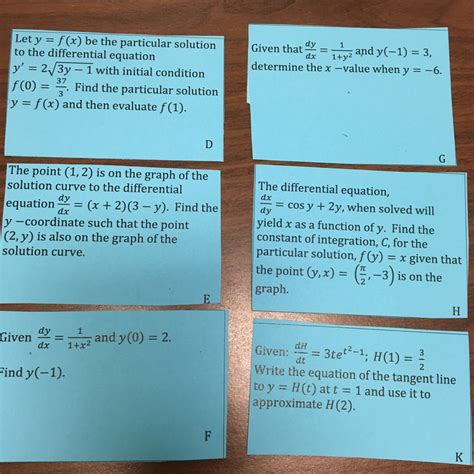 Let y = f(x) be the particular solution
to the differential equation
y′ = 2√(3y − 1) with initial condition
f(0) = 37/3. Find the particular solution
y = f(x) and then evaluate f(1).
D
Given that dy/dx = 1/(1+y²) and y(−1) = 3,
determine the x −value when y = −6.
G
The point (1, 2) is on the graph of the
solution curve to the differential
equation dy/dx = (x + 2)(3 − y). Find the
y −coordinate such that the point
(2, y) is also on the graph of the
solution curve.
E
The differential equation,
dx/dy = cos y + 2y, when solved will
yield x as a function of y. Find the
constant of integration, C, for the
particular solution, f(y) = x given that
the point (y, x) = (π/2, −3) is on the
graph.
H
Given dy/dx = 1/(1+x²) and y(0) = 2.
Find y(−1).
F
Given: dH/dt = 3te^(t²−1); H(1) = 3/2
Write the equation of the tangent line
to y = H(t) at t = 1 and use it to
approximate H(2).
K